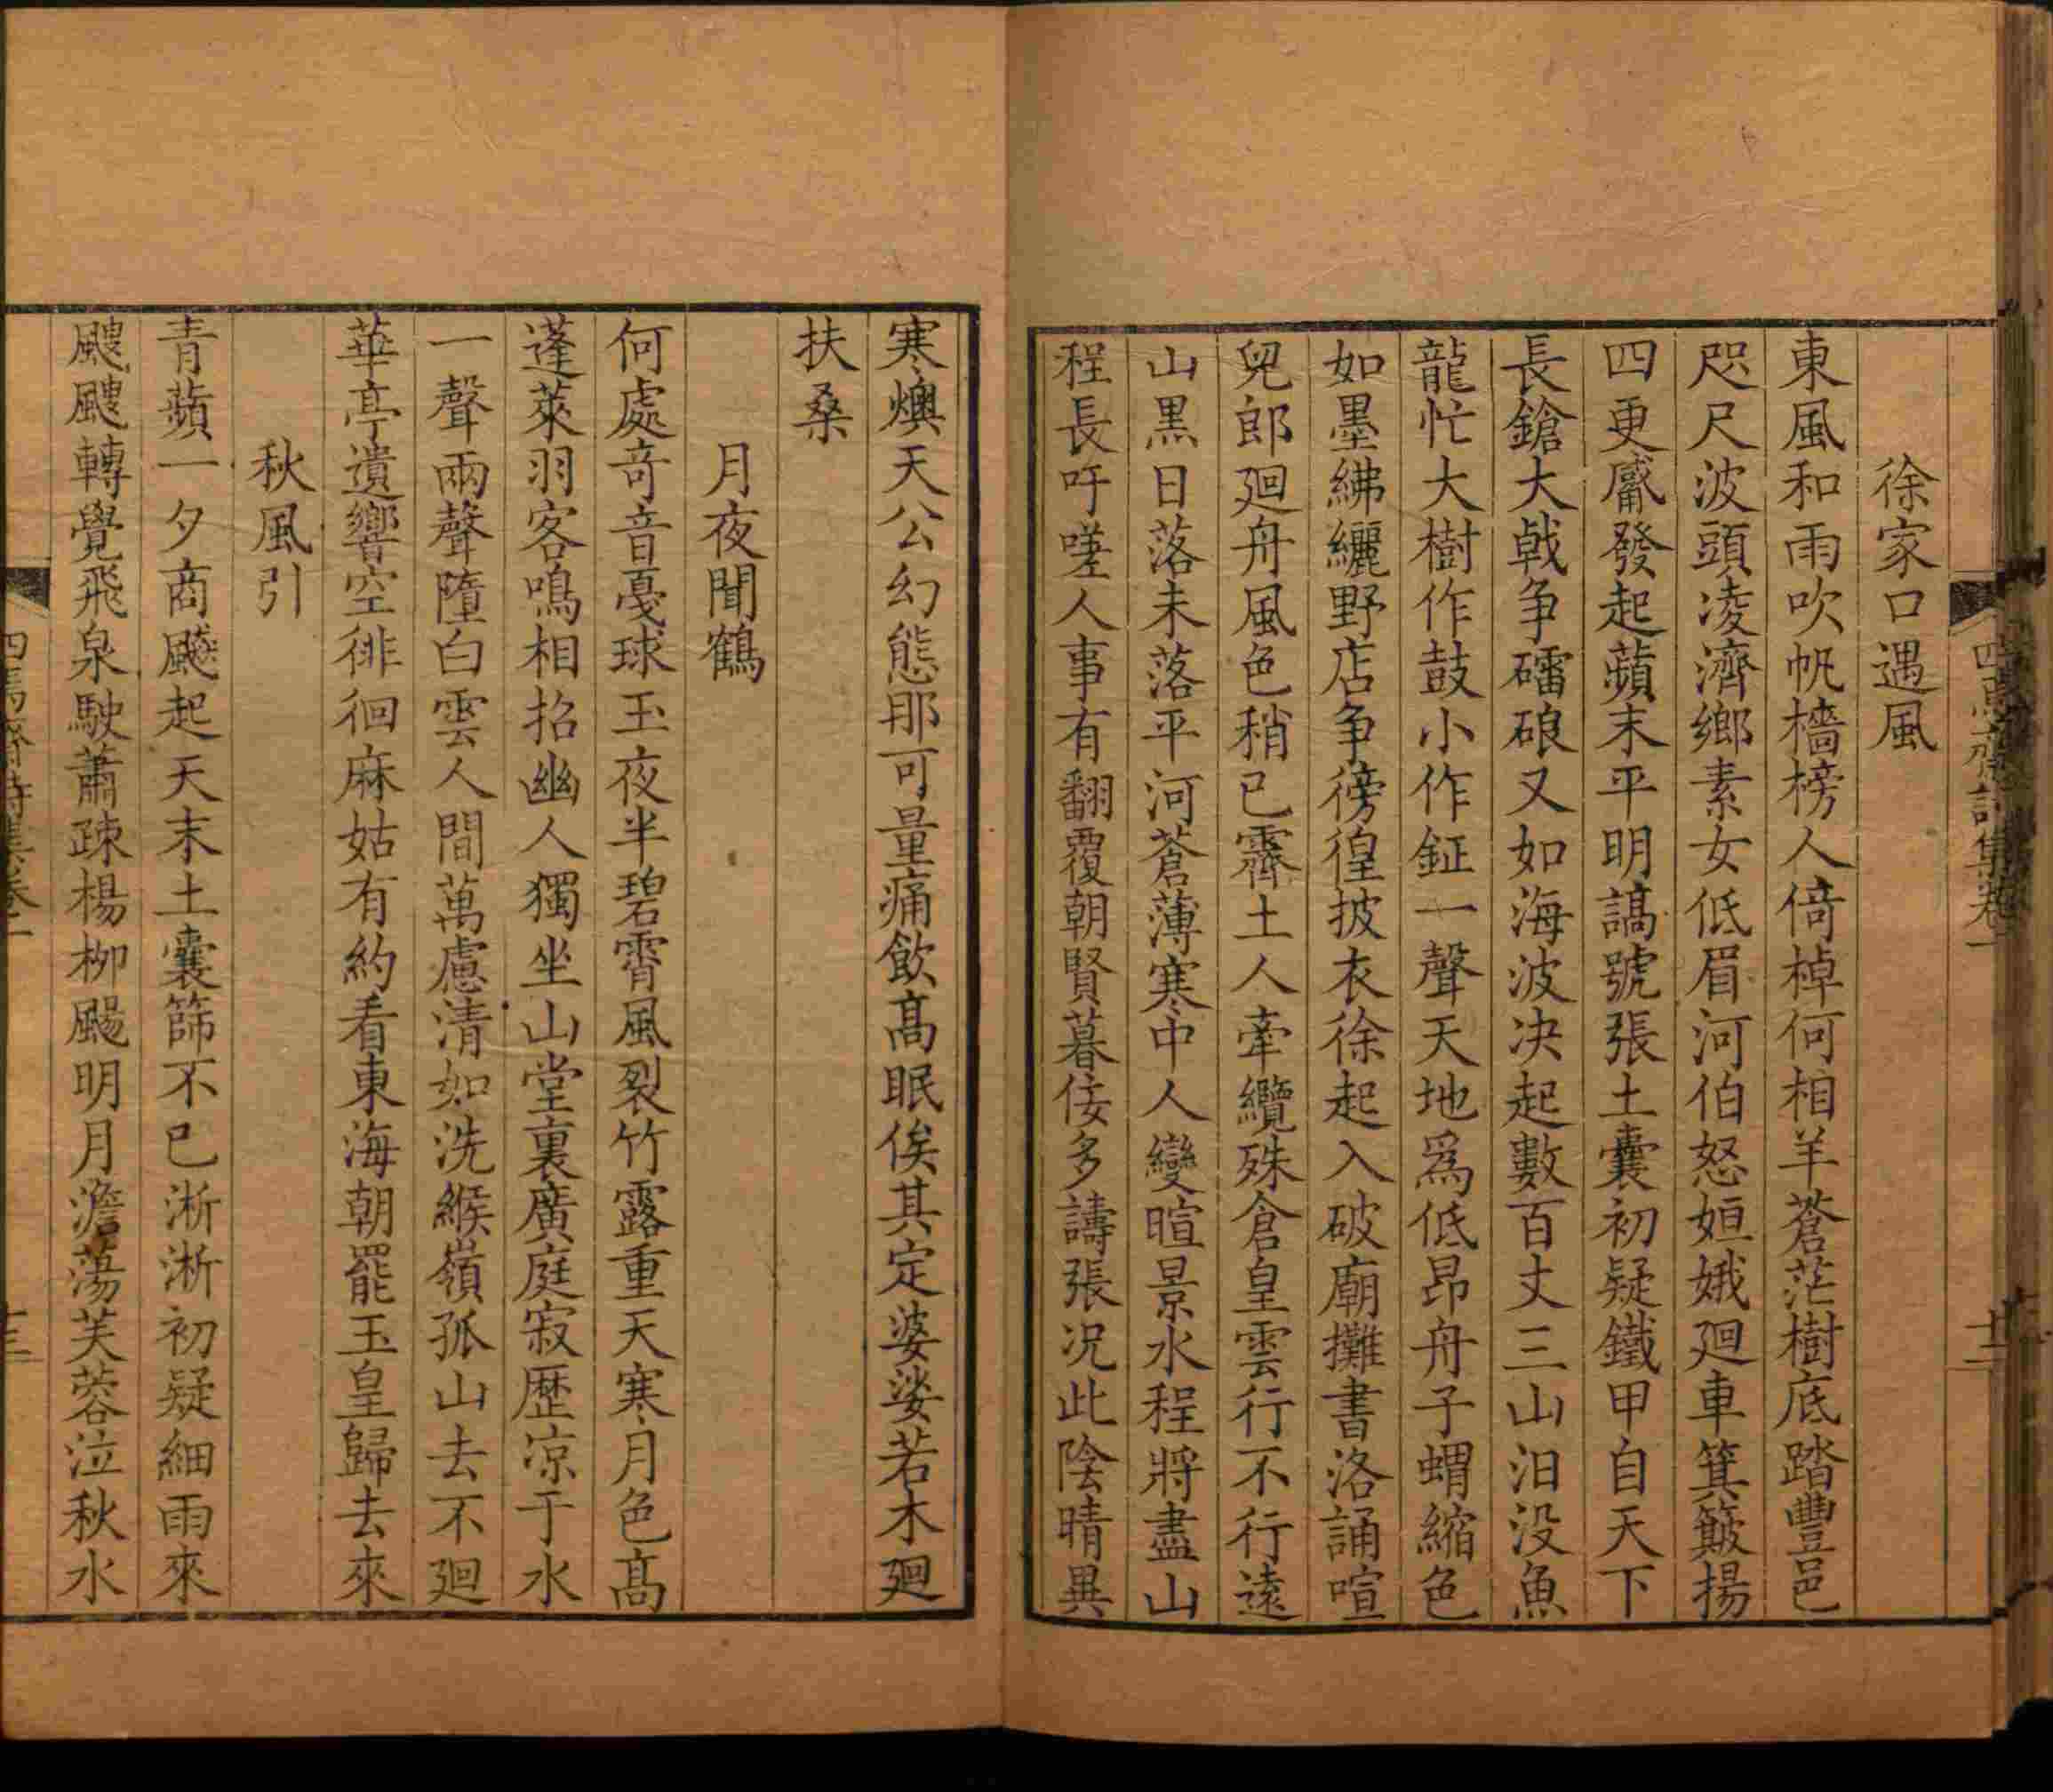 徐家口遇風
東風和雨吹帆檣榜人倚棹何相羊蒼茫樹底踏豐邑
咫尺波頭凌濟鄉素女低眉河伯怒姮娥廻車箕簸揚
四更觱發起蘋末平明謞號張土囊初疑鐵甲自天下
長鎗大戟争礌硠又如海波决起數百丈三山汨没魚
龍忙大樹作鼓小作鉦一聲天地爲低昂舟子蝟縮色
如墨紼纚野店争徬徨披衣徐起入破廟攤書洛誦喧
兒郎廻舟風色稍已霽土人牽纜殊倉皇雲行不行遠
山黒日落未落平河蒼薄寒中人變暄景水程將盡山
程長吁嗟人事有翻覆朝賢暮佞多譸張况此陰晴異
寒燠天公幻態那可量痛飲髙眠俟其定婆娑若木廻
扶桑
月夜聞鶴
何處竒音戞球玉夜半碧霄風裂竹露重天寒月色髙
蓬萊羽客鳴相招幽人獨坐山堂裏廣庭寂歷凉于水
一聲兩聲墮白雲人間萬慮清如洗緱嶺孤山去不廻
華亭遺響空徘徊麻姑有約看東海朝罷玉皇歸去來
秋風引
青蘋一夕商飈起天末土囊篩不已淅淅初疑細雨來
颼颼轉覺飛泉駛蕭疎楊栁颺明月澹蕩芙蓉泣秋水